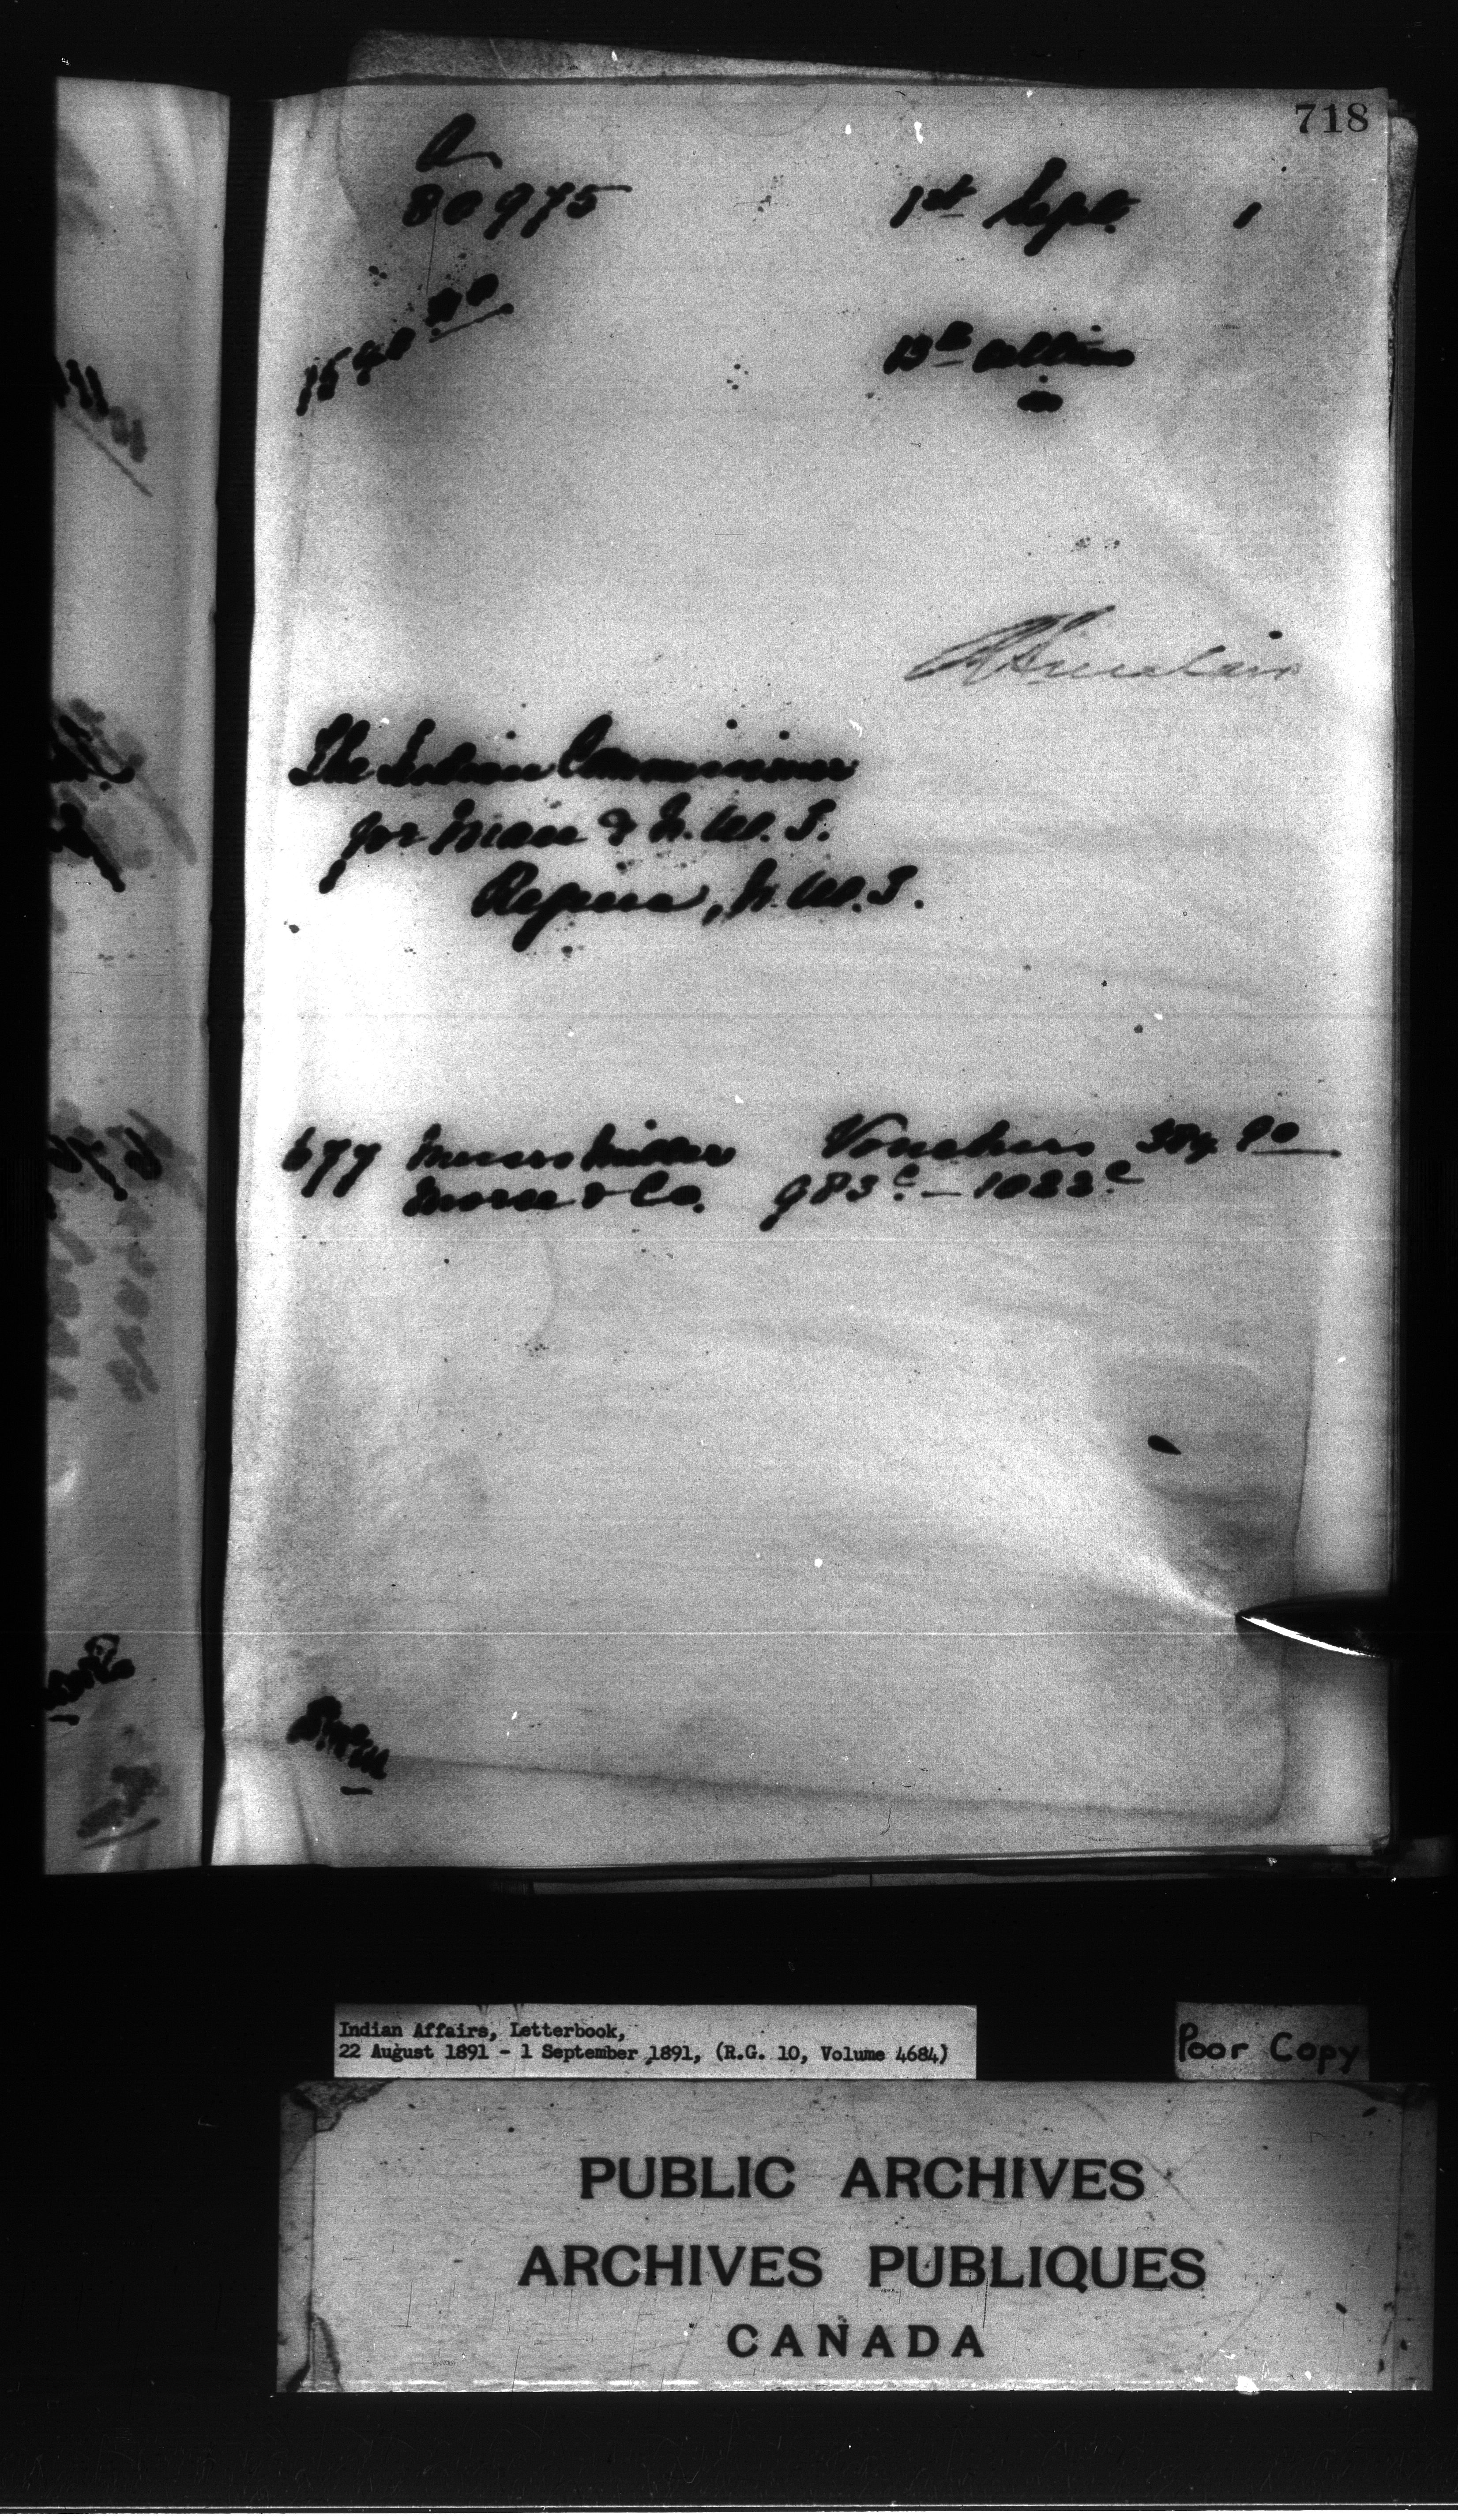 718
A
80975
1st Sept. 1
13th ultimo
A Sinclair
The Indian Commissioner
for Man & N.W.T.
Regina, N.W.T.
677 Messrs Miller Vouchers 384.90
Morse & Co. 983c - 1022c
Indian Affairs, Letterbook,
22 August 1891 - 1 September 1891, (R.G. 10, Volume 4684)
Poor Copy
PUBLIC ARCHIVES
ARCHIVES PUBLIQUES
CANADA